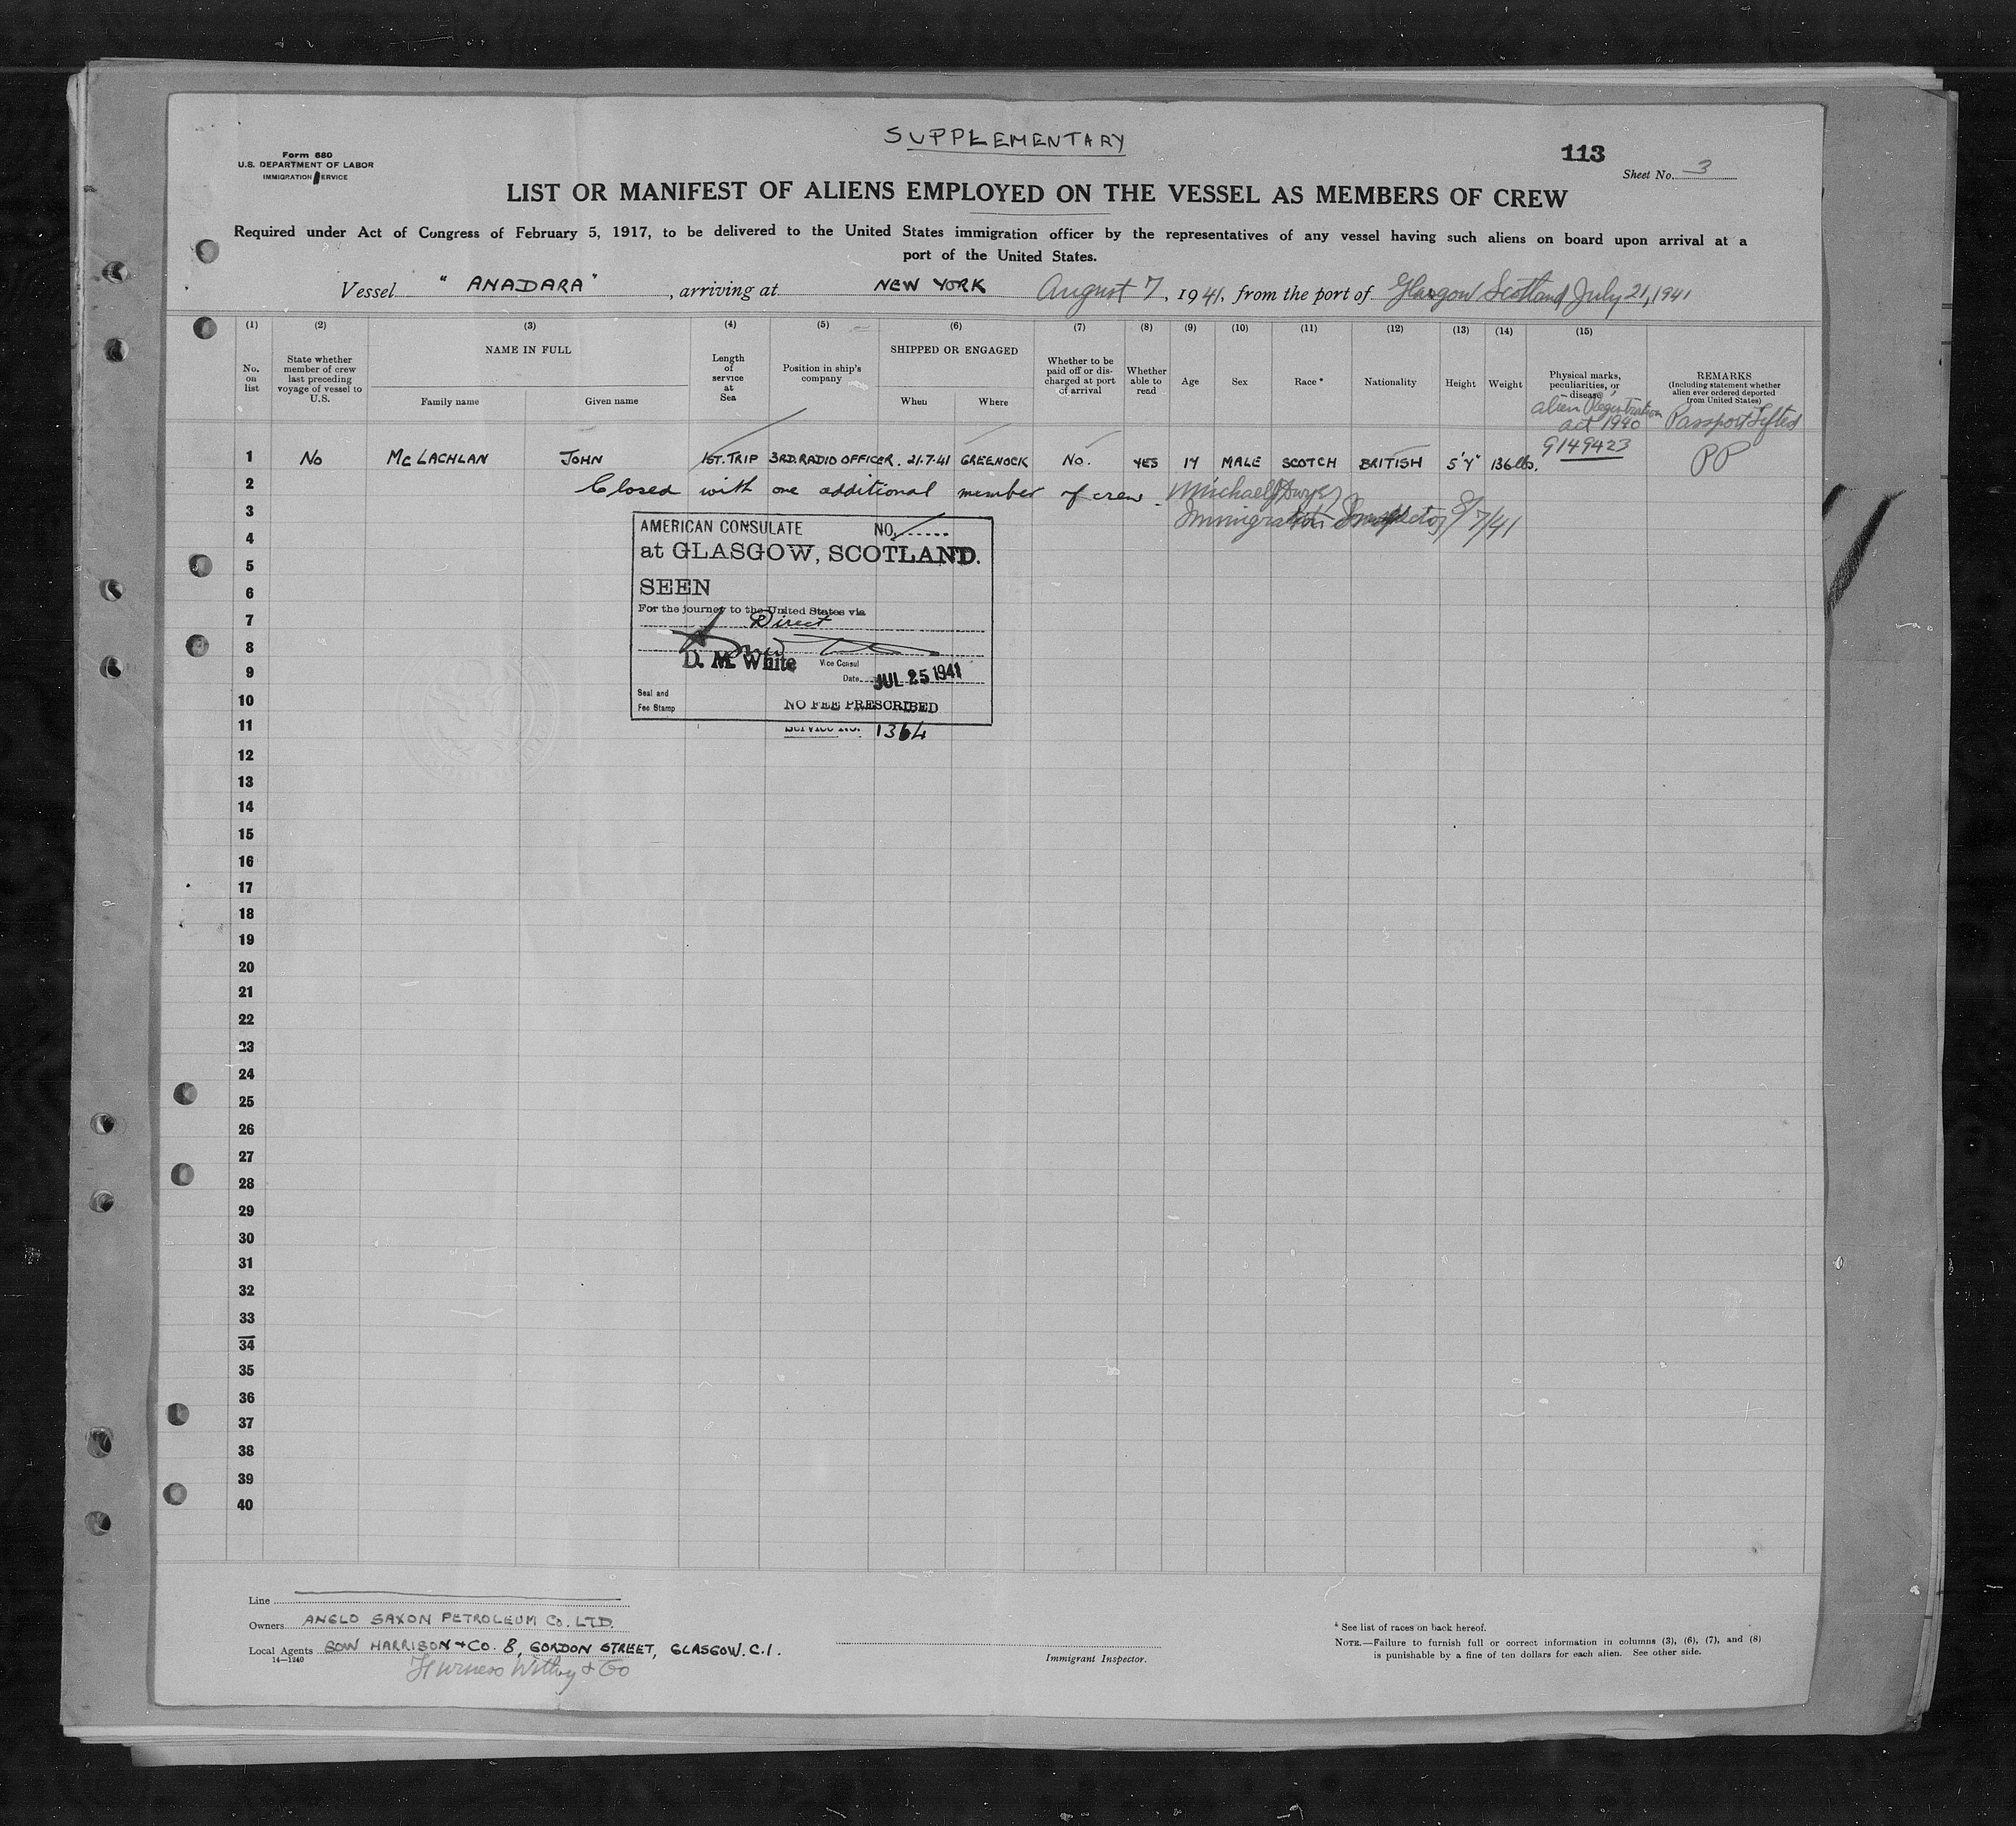 SUPPLEMENTARY
Form 680
U.S. DEPARTMENT OF LABOR
IMMIGRATION SERVICE
113
Sheet No. 3
LIST OR MANIFEST OF ALIENS EMPLOYED ON THE VESSEL AS MEMBERS OF CREW
Required under Act of Congress of February 5, 1917, to be delivered to the United States immigration officer by the representatives of any vessel having such aliens on board upon arrival at a
port of the United States.
Vessel "ANADARA", arriving at NEW YORK August 7, 1941, from the port of Glasgow Scotland July 21, 1941
(1) (2) (3) (4) (5) (6) (7) (8) (9) (10) (11) (12) (13) (14) (15)
No. on list
State whether member of crew last preceding voyage of vessel to U.S.
NAME IN FULL
Family name
Given name
Length of service at Sea
Position in ship's company
SHIPPED OR ENGAGED
When
Where
Whether to be paid off or discharged at port of arrival
Whether able to read
Age
Sex
Race *
Nationality
Height
Weight
Physical marks, peculiarities, or disease
REMARKS
(Including statement whether alien ever ordered deported from United States)
Alien Registration
act 1940
Passport Lifted
9149423
PP
1 No McLACHLAN JOHN 1ST. TRIP 3RD. RADIO OFFICER. 21.7.41 GREENOCK No. YES 17 MALE SCOTCH BRITISH 5'7" 136 lbs.
2 Closed with one additional member of crew. Michael J Dwyer
3 Immigration Inspector 8/7/41
4
5
6
7
8
9
10
11
12
13
14
15
16
17
18
19
20
21
22
23
24
25
26
27
28
29
30
31
32
33
34
35
36
37
38
39
40
AMERICAN CONSULATE NO.
at GLASGOW, SCOTLAND.
SEEN
For the journey to the United States via
Direct
D. M. White Vice Consul
Date JUL 25 1941
Seal and
Fee Stamp
NO FEE PRESCRIBED
Service No. 1364
Line
Owners ANGLO SAXON PETROLEUM Co. LTD.
Local Agents GOW HARRISON & CO. 8, GORDON STREET, GLASGOW. C.1.
14—1240
Furness Withy & Co
Immigrant Inspector.
* See list of races on back hereof.
NOTE.—Failure to furnish full or correct information in columns (3), (6), (7), and (8)
is punishable by a fine of ten dollars for each alien. See other side.